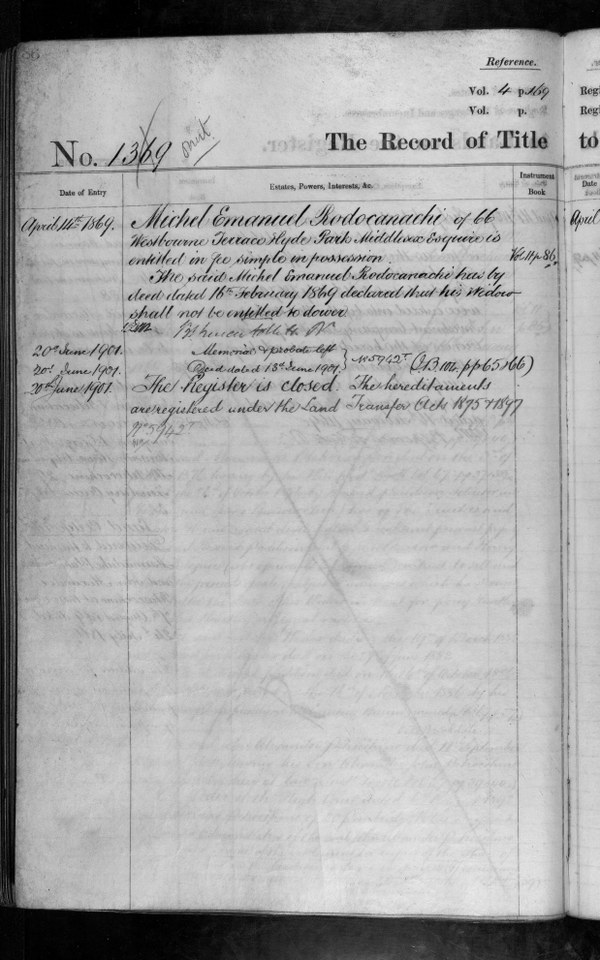 86
Reference.
Vol. 4 p. 169
Vol. p.
No. 1369
The Record of Title
Date of Entry
Estates, Powers, Interests, &c.
Instrument
Book
April 14th 1869.
Michel Emanuel Rodocanachi of 66
Westbourne Terrace Hyde Park Middlesex Esquire is
entitled in fee simple in possession.
Vol 11 p. 86.
The said Michel Emanuel Rodocanachi has by
deed dated 16th February 1869 declared that his Widow
shall not be entitled to dower
20th June 1901.
Memorial & probate left
20th June 1901.
Deed dated 13th June 1901
No 5942T
(I.B. 102. pp 65 & 66)
20th June 1901.
The Register is closed. The hereditaments
are registered under the Land Transfer Acts 1875 & 1897
No 5942T
Regi
Regi
to
Date
April